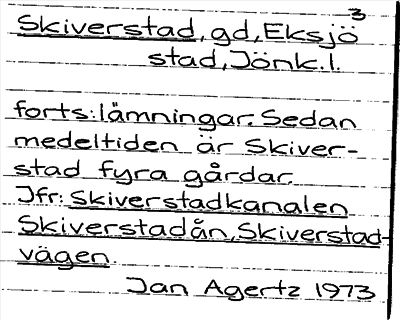 3
Skiverstad, gd, Eksjö
stad, Jönk. l.
forts: lämningar. Sedan
medeltiden är Skiver-
stad fyra gårdar.
Jfr: Skiverstadkanalen
Skiverstadån, Skiverstad-
vägen.
Jan Agertz 1973